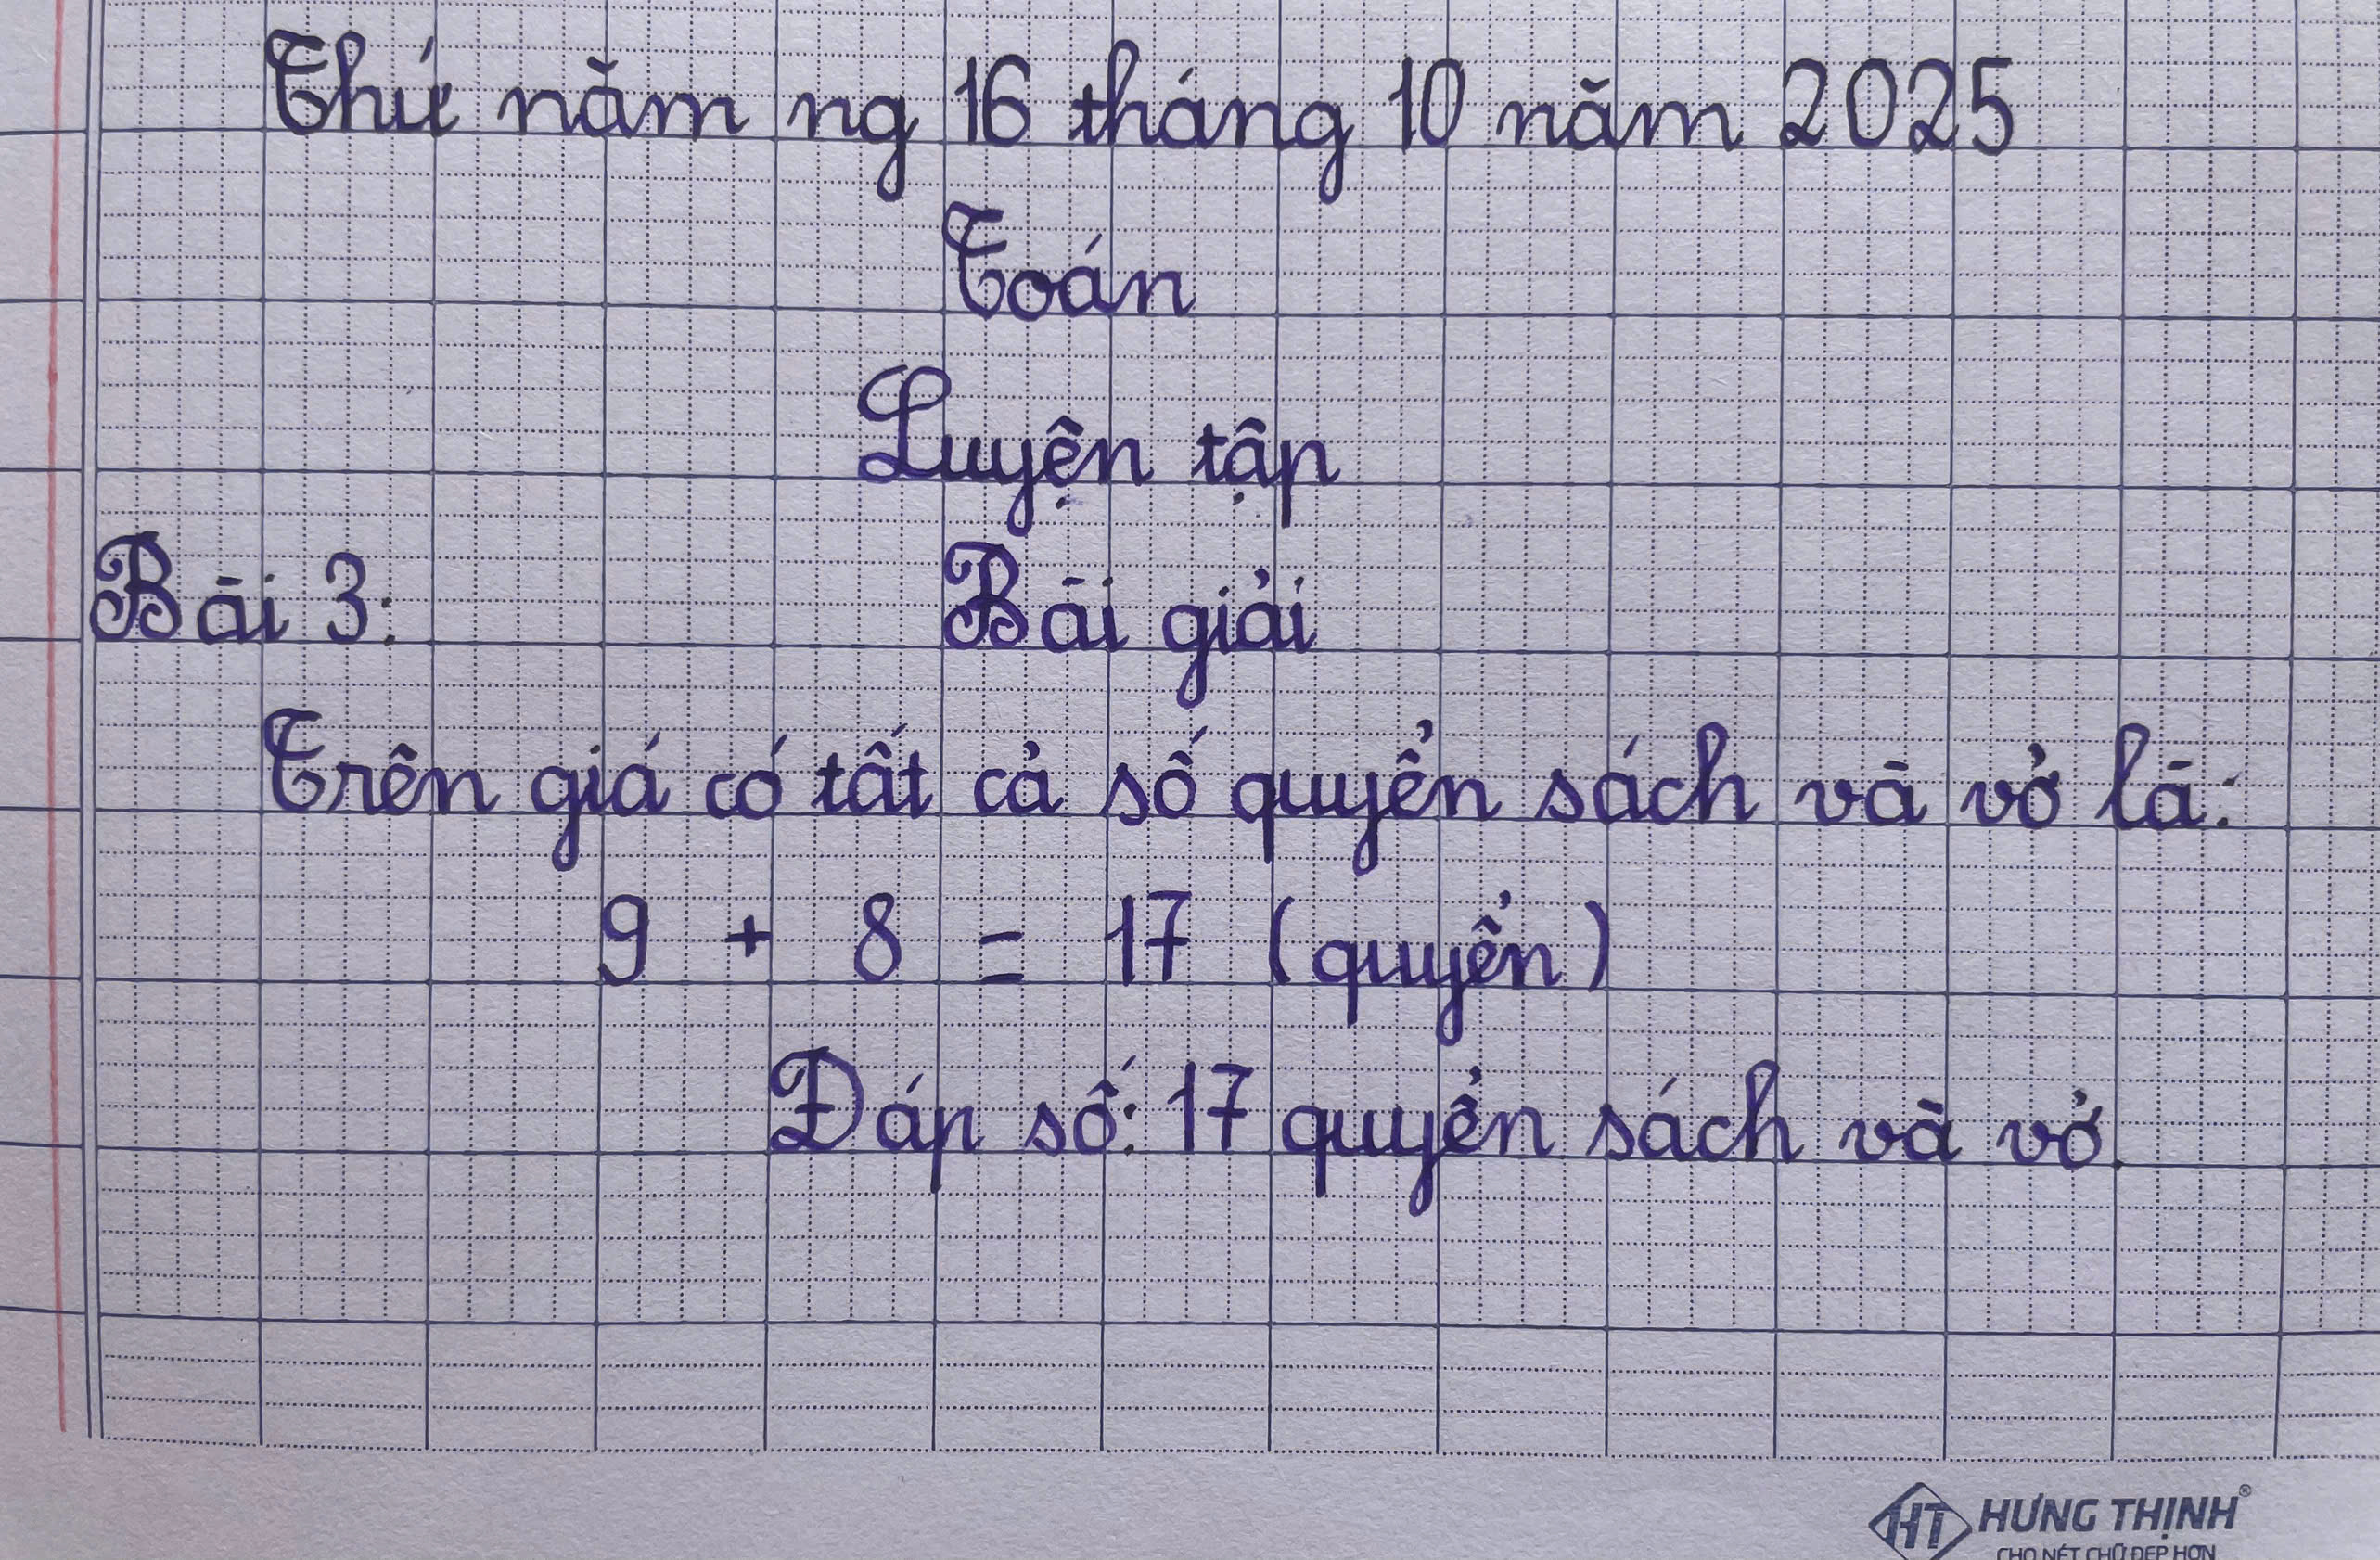 Thứ năm ng 16 tháng 10 năm 2025
Toán
Luyện tập
Bài 3: Bài giải
Trên giá có tất cả số quyển sách và vở là:
9 + 8 = 17 (quyển)
Đáp số: 17 quyển sách và vở.
HT HƯNG THỊNH®
CHO NÉT CHỮ ĐẸP HƠN